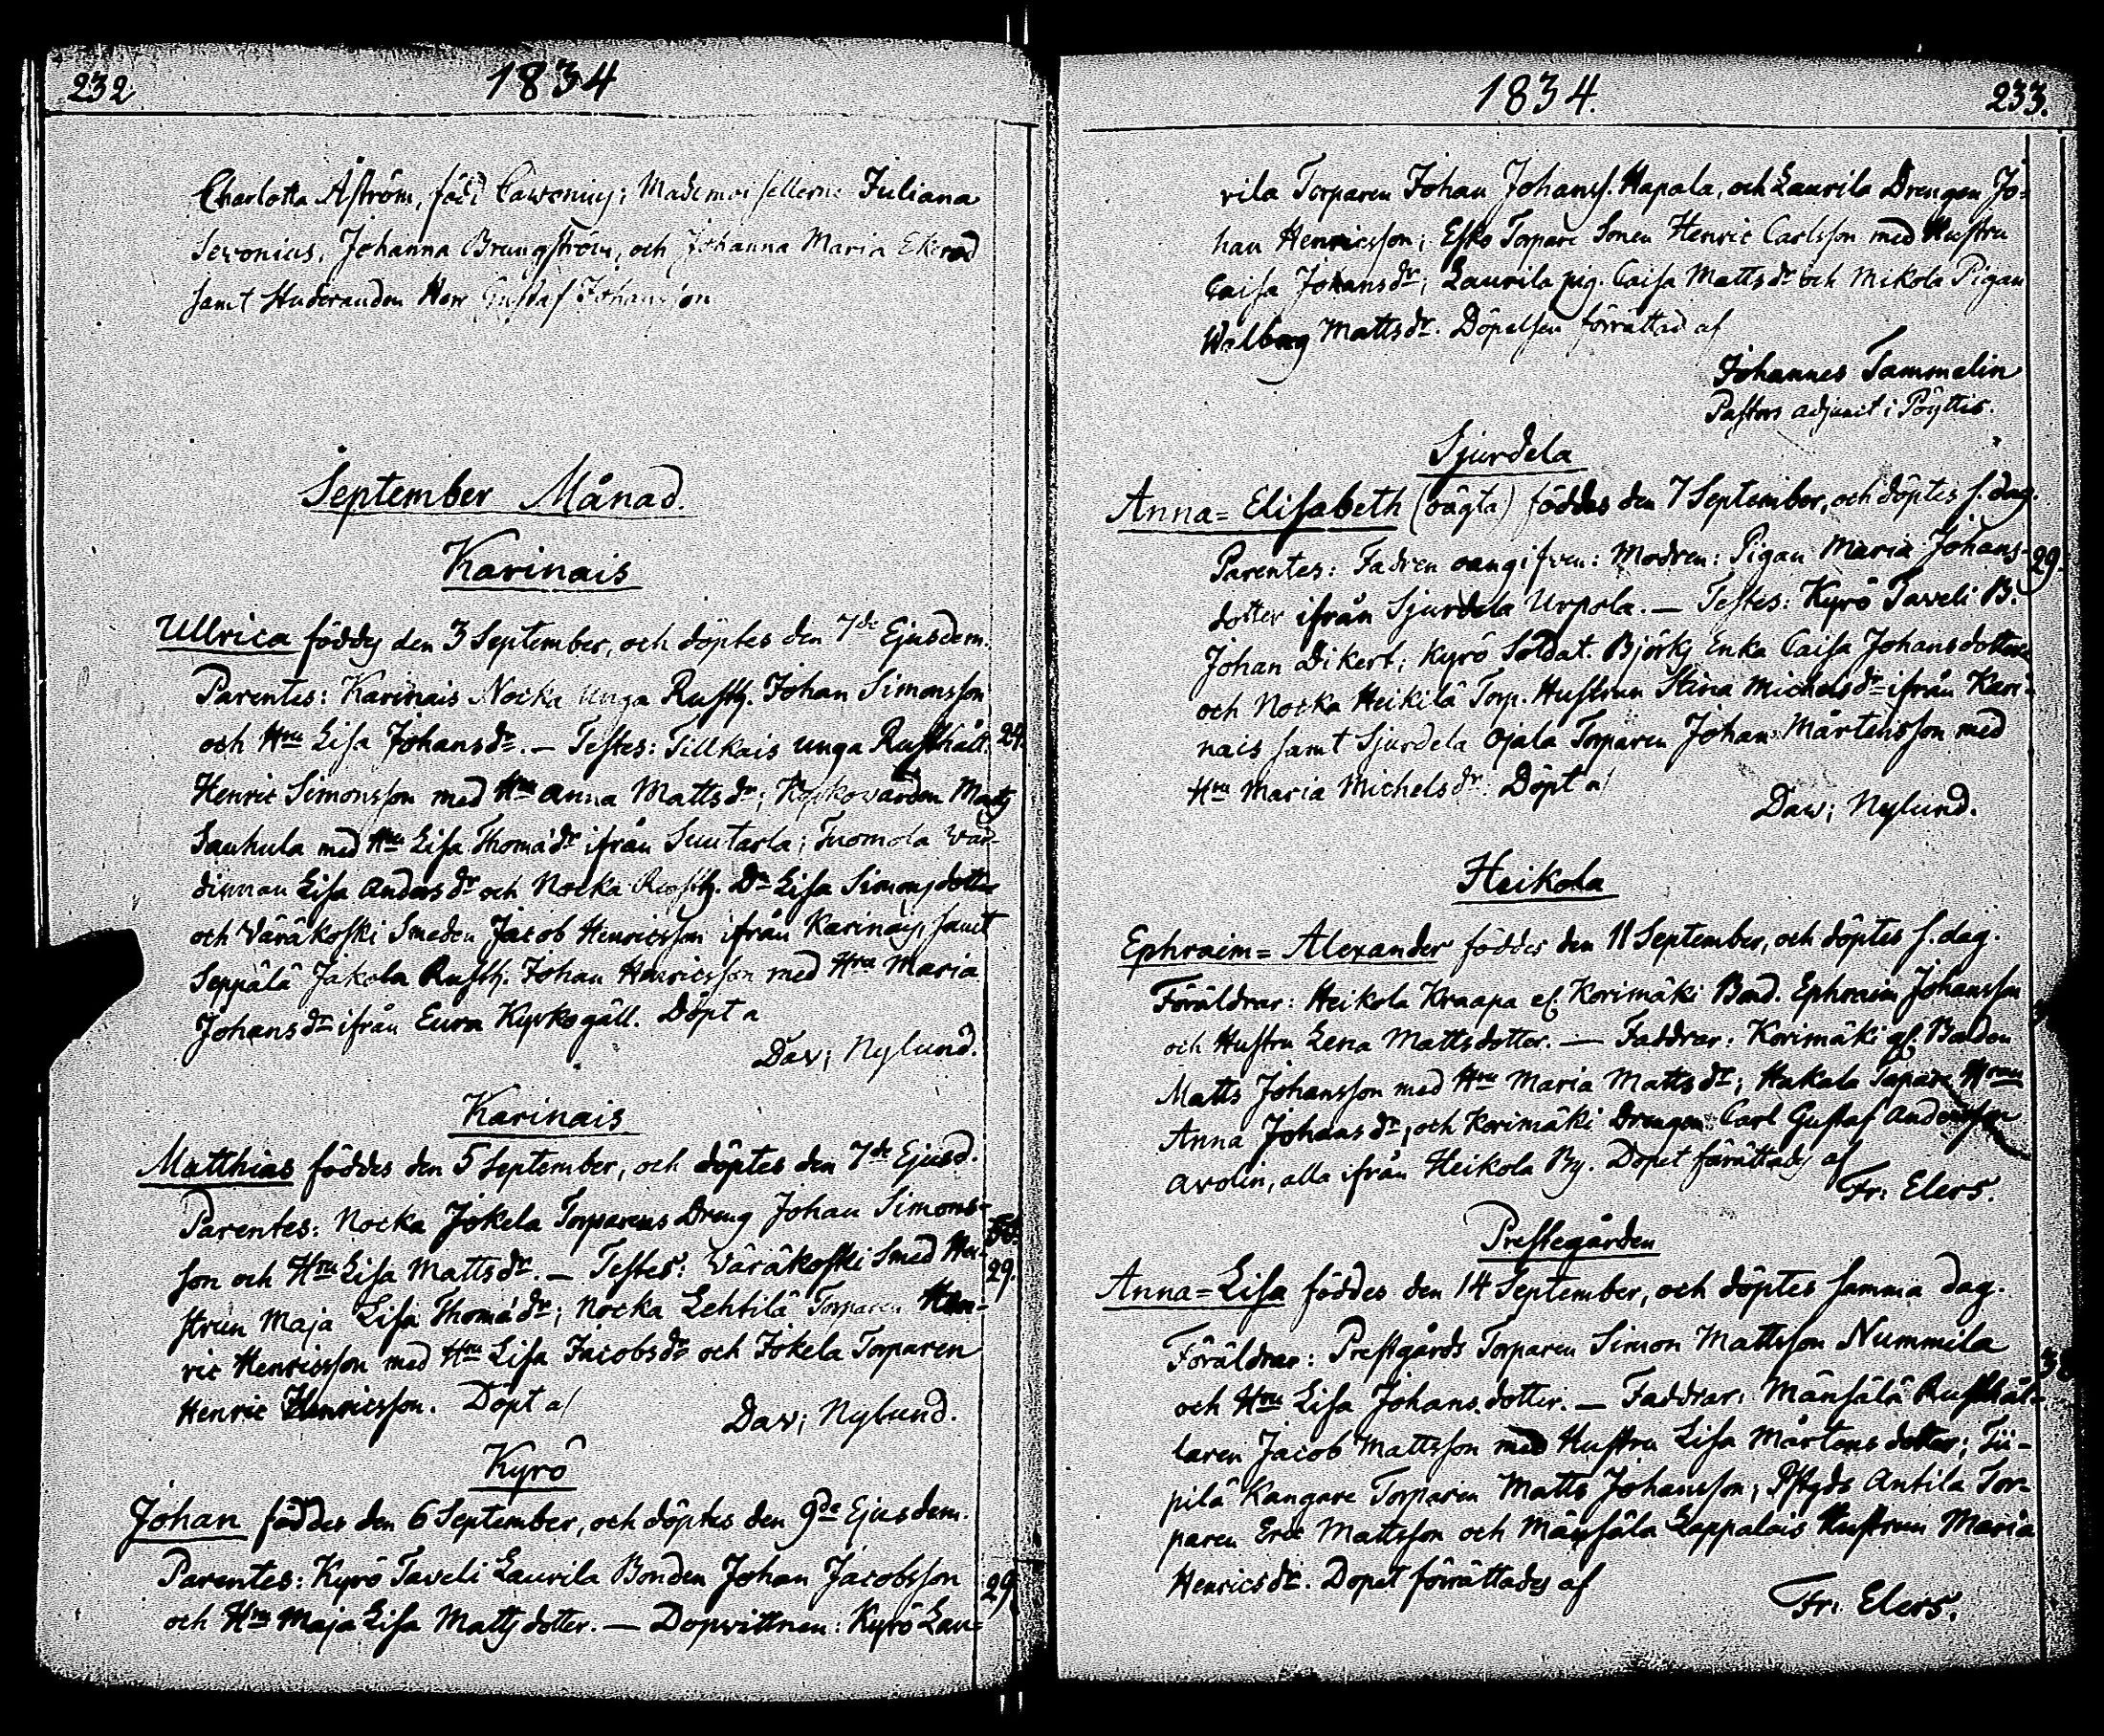 232
1834
Charlotta Åström, född Cawonius; Mademoisellerne Juliana
Sevonius, Johanna Brungström, och Johanna Maria Ekerod
samt Studeranden Herr Gustaf Johansson
September Månad.
Karinais
Ullrica föddes den 3 September, och döptes den 7de Ejusdem.
Parentes: Karinais Nocka unga Rusth. Johan Simonsson
och Hru Lisa Johansdr. — Testes: Tillkais unga Rusthålt.
29.
Henric Simonsson med Hru Anna Mattsdr; Matts
Sauhula med Hru Lisa Thomædr ifrån Suutarla; Tuomola Vär-
dinnan Lisa Andersdr och Nocka Rusth. Dr Lisa Simonsdotter
och Väräkoski Smeden Jacob Henricsson ifrån Karinais, samt
Seppälä Jakola Rusth. Johan Henricsson med Hru Maria
Johansdr ifrån Eura Kyrkogäll. Döpt a
Dav; Nylund.
Karinais
Matthias föddes den 5 September, och döptes den 7de Ejusd.
Parentes: Nocka Jokela Torparens Dreng Johan Simons-
son och Hru Lisa Mattsdr. — Testes: Väräkoski Smed Hu-
29.
strun Maja Lisa Thomædr; Nocka Lehtilä Torparen Hen-
ric Henricsson med Hru Lisa Jacobsdr och Jokela Torparen
Henric Henricsson. Döpt af
Dav; Nylund.
Kyrö
Johan föddes den 6 September, och döptes den 9de Ejusdem.
Parentes: Kyrö Taveli Laurila Bonden Johan Jacobsson
29
och Hru Maja Lisa Mattsdotter. — Dopvittnen: Kyrö Lau-
1834.
233.
rila Torparen Johan Johanss. Hapala, och Laurila Drengen Jo-
han Henricsson; Esko Torpare Sonen Henric Carlsson med Hustru
Caisa Johansdr; Laurila pig. Caisa Mattsdr och Mikola Pigan
Walborg Mattsdr. Döpelsen förrättad af
Johannes Tammelin
Pastors adjunct i Pöyttis.
Sjurdela
Anna=Elisabeth (oägta) föddes den 7 September, och döptes s. dag.
Parentes: Fadren oangifven: Modren: Pigan Maria Johans-
29.
dotter ifrån Sjurdela Urpola. — Testes: Kyrö Taveli B.
Johan Dikert; Kyrö Soldat. Björks Enka Caisa Johansdotter
och Nocka Heikilä Torp. Hustrun Stina Michelsdr ifrån Kari-
nais samt Sjurdela Ojala Torparen Johan Mårtensson med
Hru Maria Michelsdr. Döpt af
Dav; Nylund.
Heikola
Ephraim=Alexander föddes den 11 September, och döptes s. dag.
Föräldrar: Heikola Kraapa el. Korimäki Bond. Ephraim Johansson
och Hustru Lena Mattsdotter. — Faddrar: Korimäki gl. Bonden
Matts Johansson med Hru Maria Mattsdr; Hakala Hrun
Anna Johansdr, och Korimäki Drengen Carl Gustaf Andersson
Avolin, alla ifrån Heikola By. Dopet förrättades af
Fr: Elers.
Prestegården
Anna=Lisa föddes den 14 September, och döptes samma dag.
Föräldrar: Prestgårds Torparen Simon Mattsson Nummila
och Hru Lisa Johansdotter. — Faddrar: Mänsälä Rusthål-
laren Jacob Mattsson med Hustru Lisa Mårtensdotter; Tii-
pilä Kangare Torparen Matts Johansson; Pstgds Antila Tor-
paren Eric Mattsson och Mänsäla Lappalais Hustrun Maria
Henricsdr. Dopet förrättades af
Fr: Elers.